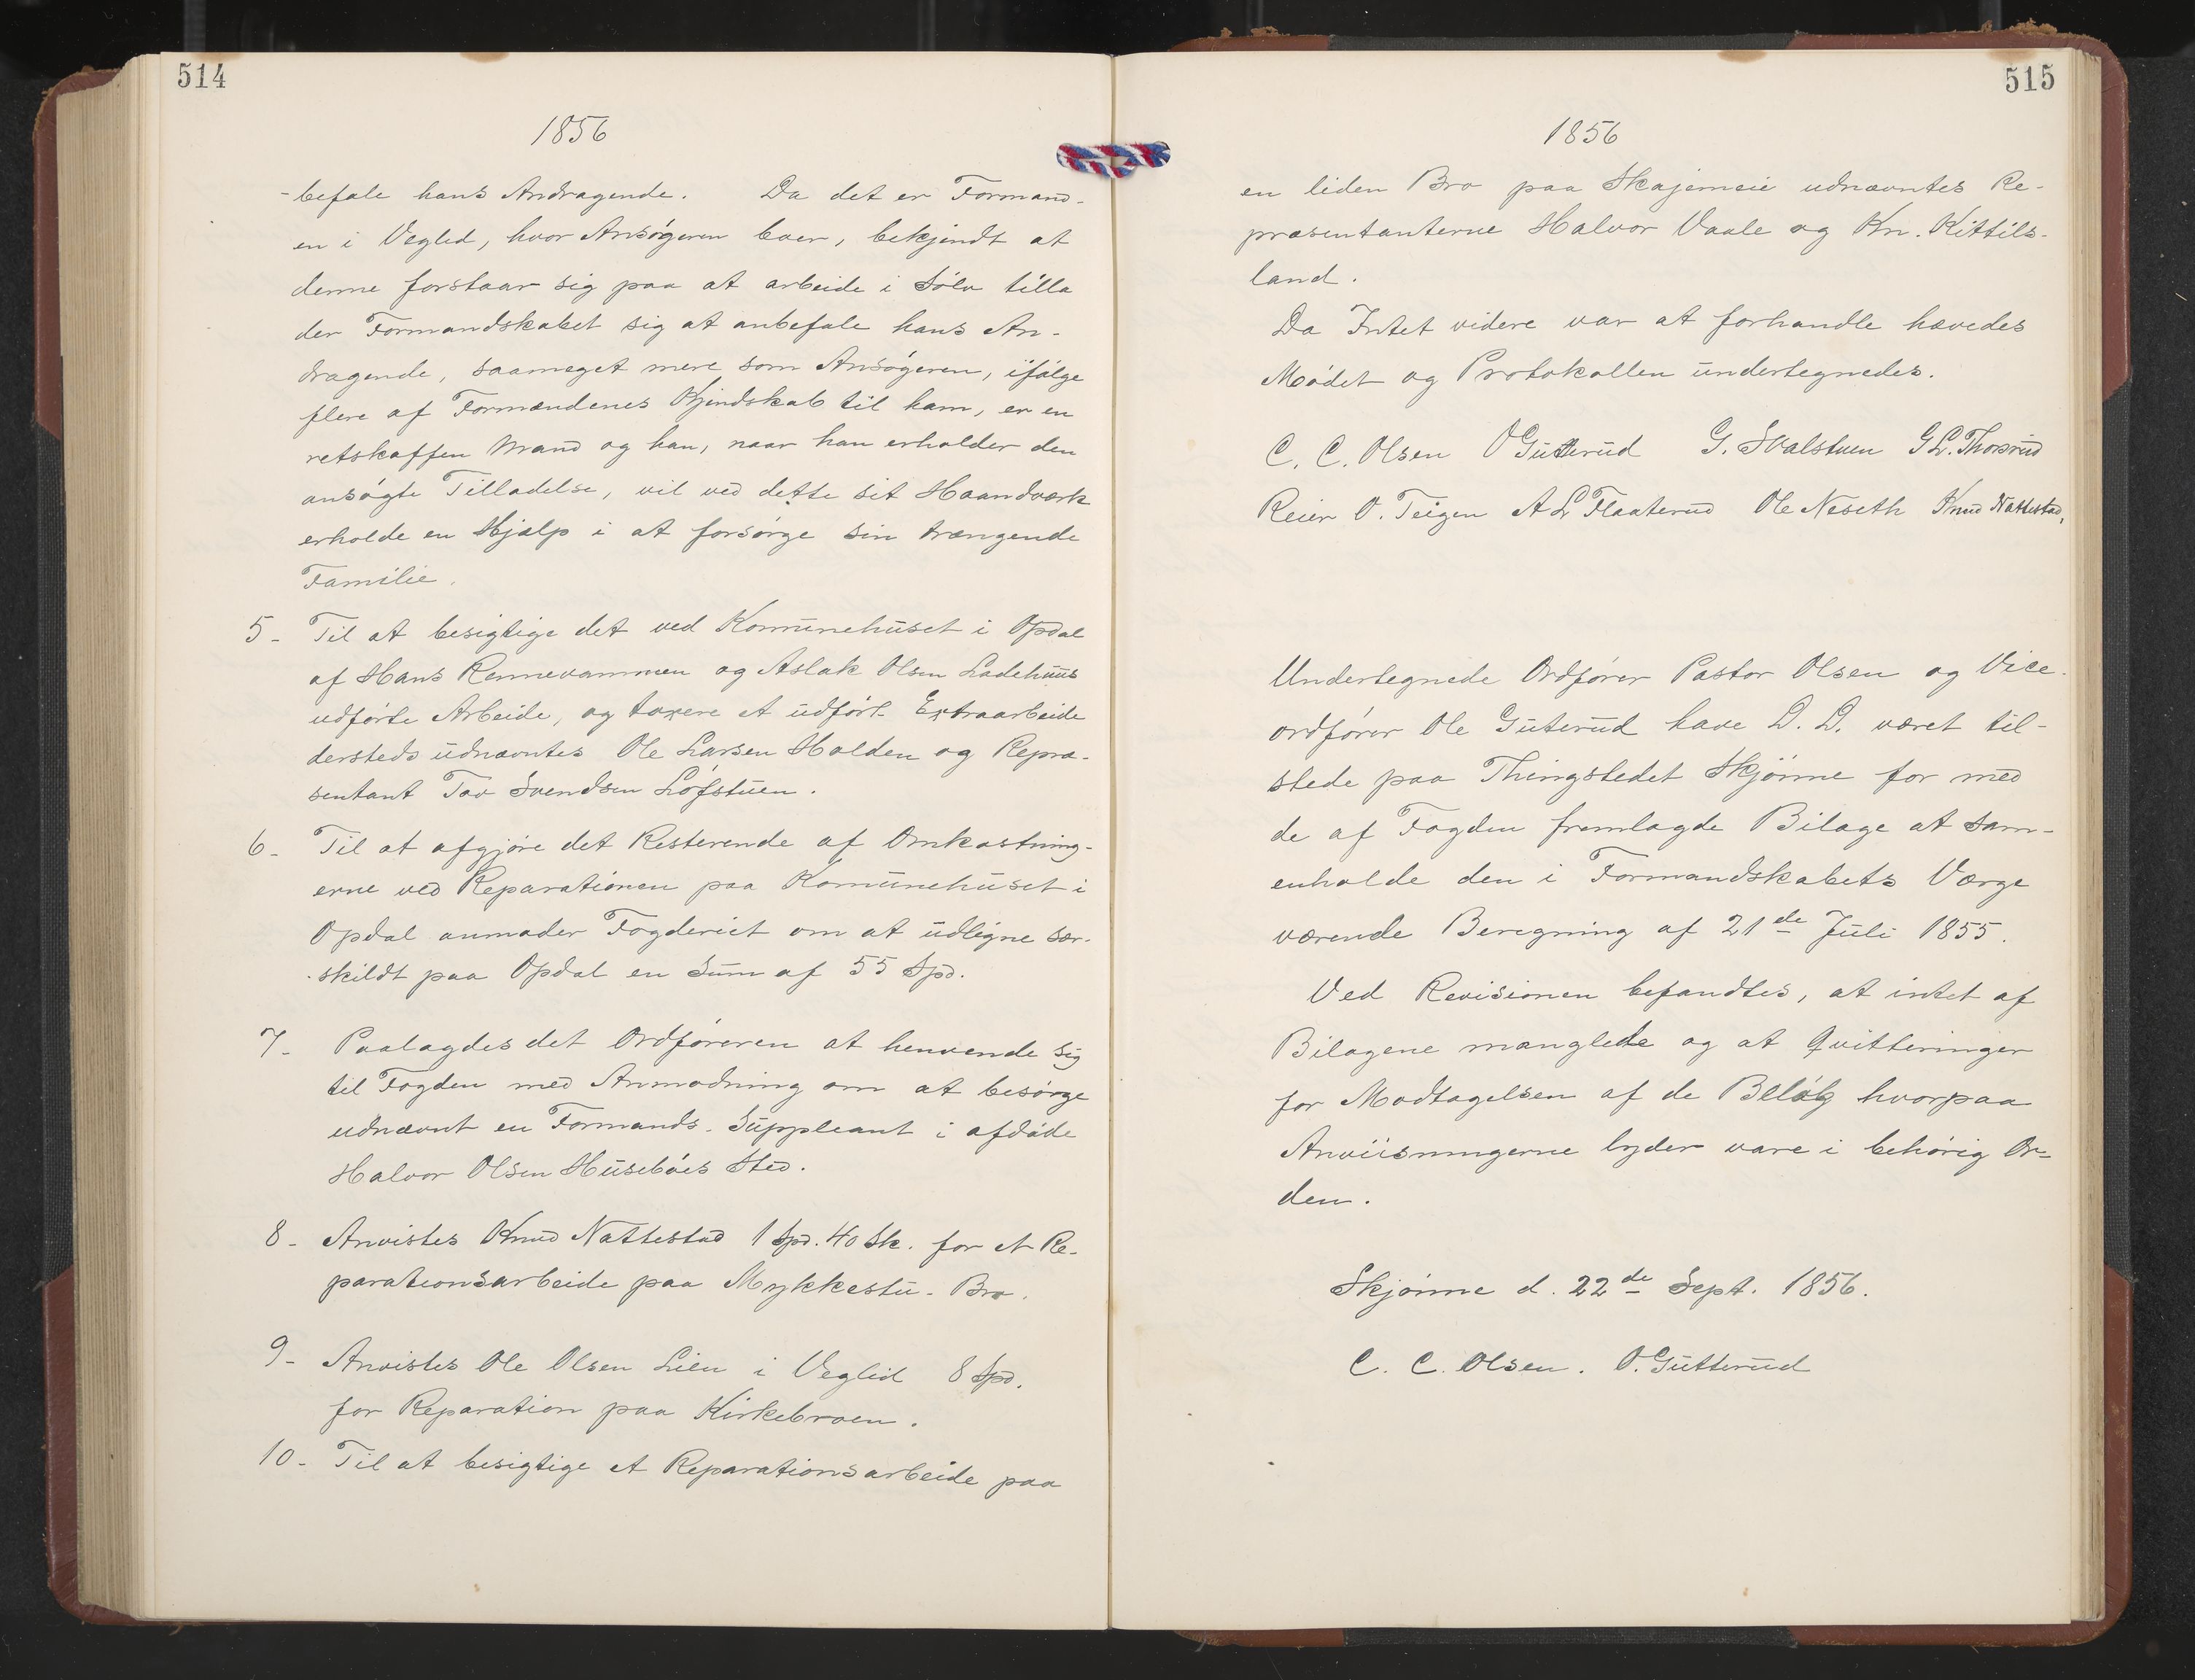 514
1856
-befale hans Andragende. Da det er Formand-
en i Veglid, hvor Ansøgeren boer, bekjendt at
denne forstaar sig paa at arbeide i Sølv tilla
der Formandskabet sig at anbefale hans An-
dragende, saameget mere som Ansøgeren, ifølge
flere af Formændenes Kjendskab til ham, er en
retskaffen Mand og han, naar han erholder den
ansøgte Tilladelse, vil ved dette sit Haandværk
erholde en Hjælp i at forsørge sin trængende
Familie.
5- Til at besigtige det ved Komunehuset i Opdal
af Hans Rennevammen og Aslak Olsen Ladehuus
udførte Arbeide, og taxere et udført Extraarbeide
dersteds udnævntes Ole Larsen Holden og Repræ-
sentant Tov Svendsen Løfstuen.
6- Til at afgjøre det Resterende af Omkostning-
erne ved Reparationen paa Komunehuset i
Opdal anmoder Fogderiet om at udligne sær-
skildt paa Opdal en Sum af 55 Spd.
7- Paalagdes det Ordføreren at henvende sig
til Fogden med Anmodning om at besørge
udnævnt en Formands-Suppleant i afdøde
Halvor Olsen Husebøes Sted.
8- Anvistes Knud Nattestad 1 Spd. 40 Sk. for et Re-
parationsarbeide paa Mykkestu-Bro.
9- Anvistes Ole Olsen Lien i Veglid 8 Spd.
for Reparation paa Kirkebroen.
10- Til at besigtige et Reparationsarbeide paa
515
1856
en liden Bro paa Skajemeie udnævntes Re-
præsentanterne Halvor Vaale og Kn. Kittils-
land.
Da Intet videre var at forhandle hævedes
Mødet og Protokollen undertegnedes.
C. C. Olsen O Gutterud G. Svalstuen G L. Thorsrud
Reier O. Teigen A L Flaaterud Ole Neseth Knud Nattestad,
Undertegnede Ordfører Pastor Olsen og Vice-
ordfører Ole Guterud have D. D. været til-
stede paa Thingstedet Skjønne for med
de af Fogden fremlagde Bilage at sam-
enholde den i Formandskabets Værge
værende Beregning af 21de Juli 1855.
Ved Revisionen befandtes, at intet af
Bilagene manglede og at Qvitteringer
for Modtagelsen af de Beløb hvorpaa
Anviisningerne lyder vare i behørig Or-
den.
Skjønne d. 22de Sept. 1856.
C. C. Olsen. O. Gutterud